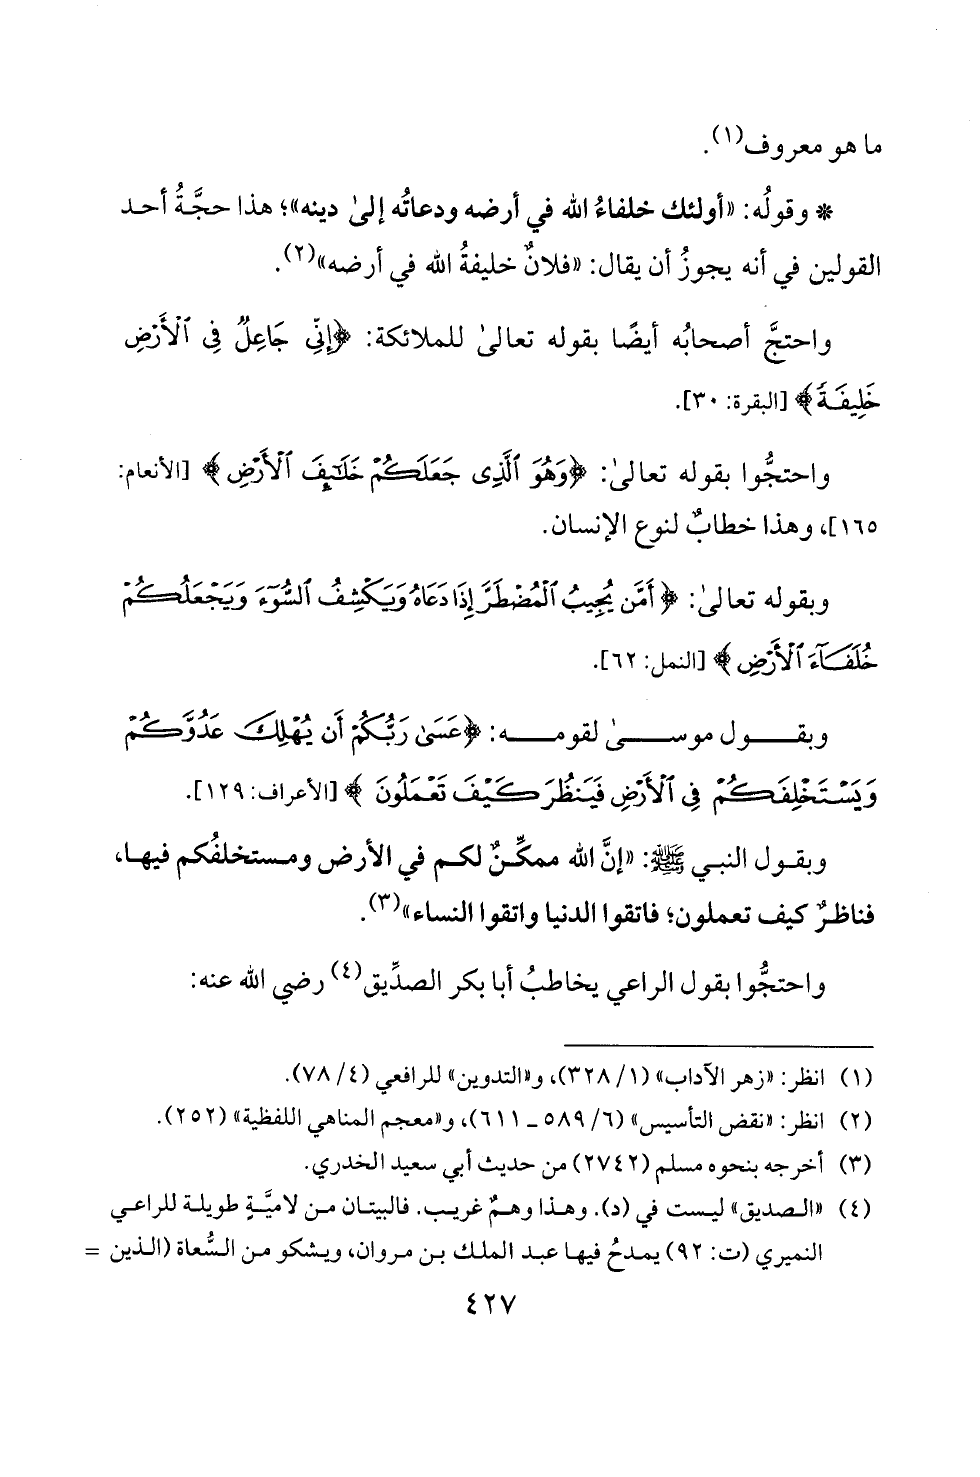 ما هو معروف(١).
* وقولُه: «أولئك خلفاءُ الله في أرضه ودعاتُه إلىٰ دينه»؛ هذا حجَّةُ أحد
القولين في أنه يجوزُ أن يقال: «فلانٌ خليفةُ الله في أرضه»(٢).
واحتجَّ أصحابُه أيضًا بقوله تعالىٰ للملائكة: ﴿إِنِّي جَاعِلٌ فِي ٱلْأَرْضِ
خَلِيفَةً﴾ [البقرة: ٣٠].
واحتجُّوا بقوله تعالىٰ: ﴿وَهُوَ ٱلَّذِى جَعَلَكُمْ خَلَـٰٓئِفَ ٱلْأَرْضِ﴾ [الأنعام:
١٦٥]، وهذا خطابٌ لنوع الإنسان.
وبقوله تعالىٰ: ﴿أَمَّن يُجِيبُ ٱلْمُضْطَرَّ إِذَا دَعَاهُ وَيَكْشِفُ ٱلسُّوٓءَ وَيَجْعَلُكُمْ
خُلَفَآءَ ٱلْأَرْضِ﴾ [النمل: ٦٢].
وبقـول موسـىٰ لقومـه: ﴿عَسَىٰ رَبُّكُمْ أَن يُهْلِكَ عَدُوَّكُمْ
وَيَسْتَخْلِفَكُمْ فِى ٱلْأَرْضِ فَيَنظُرَ كَيْفَ تَعْمَلُونَ﴾ [الأعراف: ١٢٩].
وبقول النبي ﷺ: «إنَّ الله ممكِّنٌ لكم في الأرض ومستخلفُكم فيها،
فناظرٌ كيف تعملون؛ فاتقوا الدنيا واتقوا النساء»(٣).
واحتجُّوا بقول الراعي يخاطبُ أبا بكر الصدِّيق(٤) رضي الله عنه:
(١) انظر: «زهر الآداب» (١/ ٣٢٨)، و«التدوين» للرافعي (٤/ ٧٨).
(٢) انظر: «نقض التأسيس» (٦/ ٥٨٩ - ٦١١)، و«معجم المناهي اللفظية» (٢٥٢).
(٣) أخرجه بنحوه مسلم (٢٧٤٢) من حديث أبي سعيد الخدري.
(٤) «الصديق» ليست في (د). وهذا وهمٌ غريب. فالبيتان من لاميَّةٍ طويلة للراعي
النميري (ت: ٩٢) يمدحُ فيها عبد الملك بن مروان، ويشكو من السُّعاة (الذين =
٤٢٧